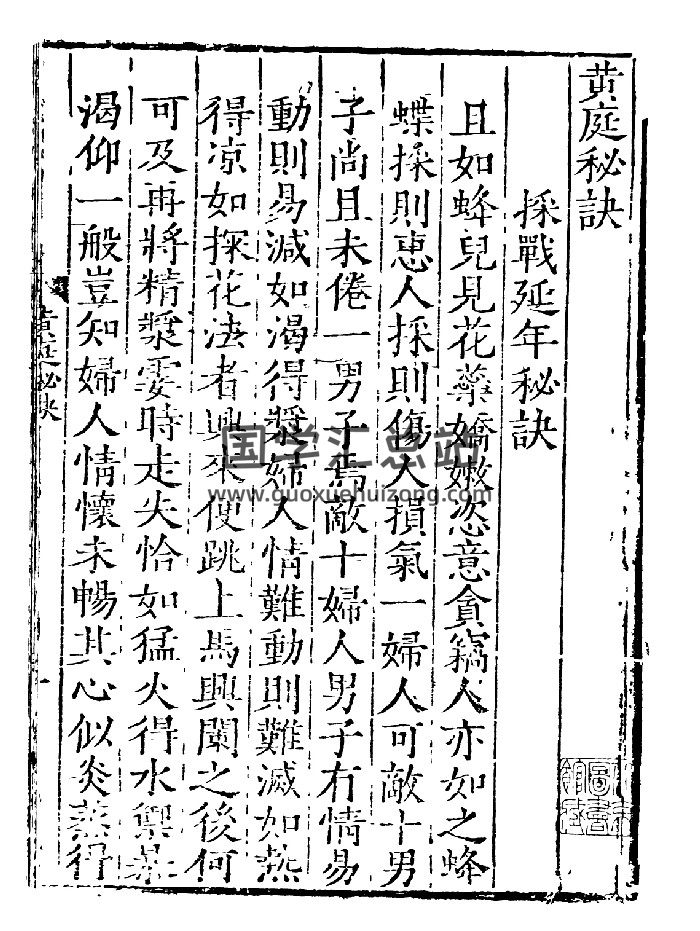 黄庭秘訣
採戰延年秘訣
且如蜂兒見花蘂嬌嫩恣意貪竊人亦如之蜂
蝶採則恵人採則傷人損氣一婦人可敵十男
子尚且未倦一男子焉敵十婦人男子有情易
動則易減如渴得漿婦人情難動則難滅如熱
得凉如探花法者興來便跳上馬興闌之後何
可及再將精漿霎時走失恰如猛火得水禦暴
渴仰一般豈知婦人情懷未暢其心似炎蒸行
黄庭秘訣
一
国学汇总站
www.guoxuehuizong.com